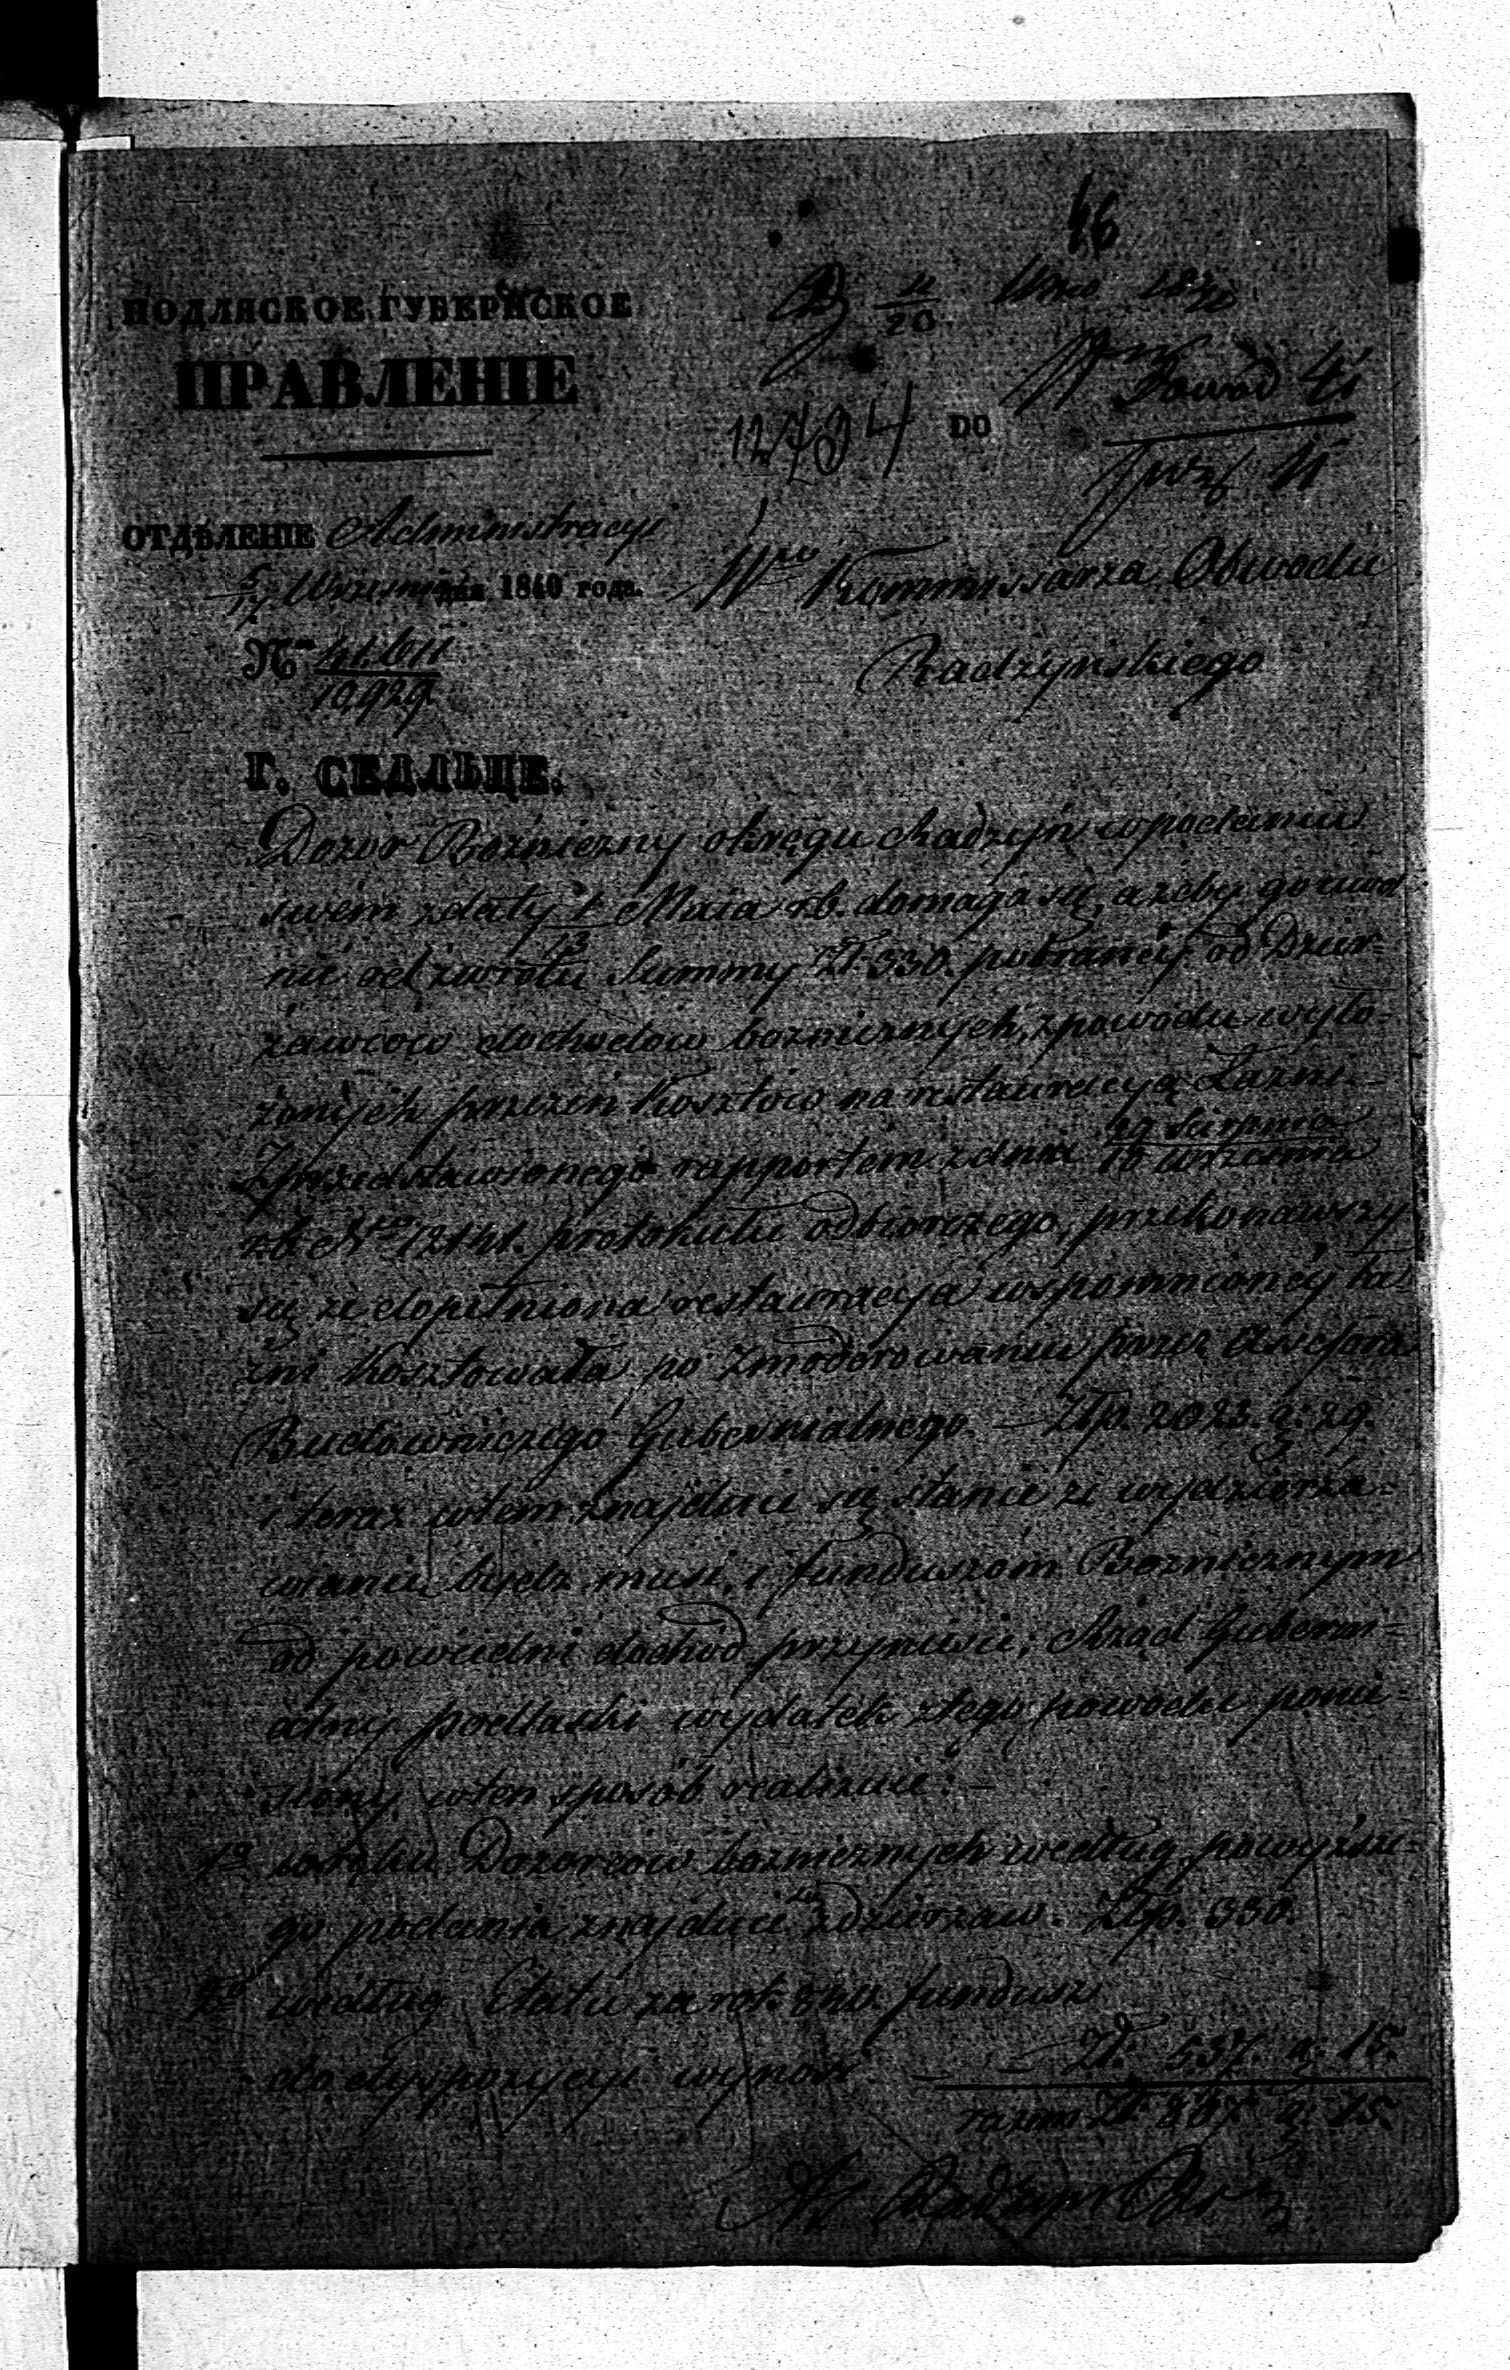 46
ПОДЛЯСКОЕ ГУБЕРНСКОЕ
ПРАВЛЕНІЕ
20
12704
DO
Dowód
ОТДѢЛЕНІЕ Administracyi
5/17 Września дня 1840 года.
Wgo Kommissarza Obwodu
Radzyńskiego
No 41611
10929
Г. СЕДЛЬЦЕ.
Dozór Bożniczny okręgu Radzyń w podaniu
swém z daty 1/13 Maia r.b. domaga się, ażeby go uwol
nić od zwrotu Summy Zł. 330. pobranéy od Dzier-
żawców dochodów bożnicznych, z powodu wyło-
żonych przezeń Kosztów na restauracyą Łazni.
Z przedstawionego rapportem z dnia 29 Sierpnia/10 Września
r.b. No 12141. protokułu odbiorczego, przekonawszy
się że dopełniona restauracya wspomnionéy ła
zni kosztowała po zmoderowaniu przez Assessora
Budowniczego Gubernialnego. — Złp. 2023. g: 29.
i teraz w tem znajduie się stanie że wydzierża-
wianą bydz musi, i funduszom Bożnicznym
odpowiedni dochód przyniesie; Rząd Guberni=
alny Podlaski wydatek z tego powodu ponie=
siony w ten sposób realizuie. —
1o w ręku Dozorców bożnicznych według powyższe-
go podania znajduie się z dzierżaw. Złp. 330.
2o według Etatu za rok 840. fundusz
do dyspozycyi wynosi — Zł. 537. g: 15.
razem Zł. 867 g: 15.